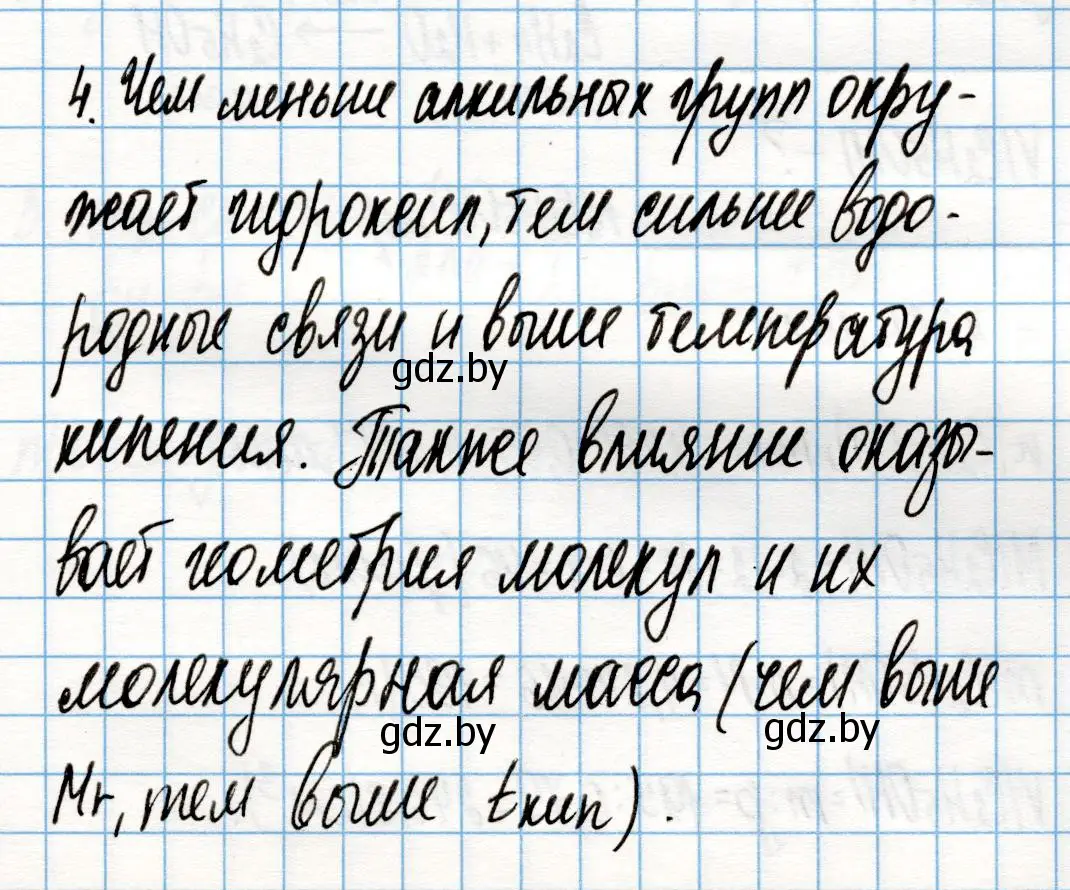 4. Чем меньше алкильных групп окру-
жает гидроксил, тем сильнее водо-
родные связи и выше температура
gdz.by
кипения. Также влияние оказы-
вает геометрия молекул и их
молекулярная масса (чем выше
gdz.by
gdz.by
Mr, тем выше tкип).